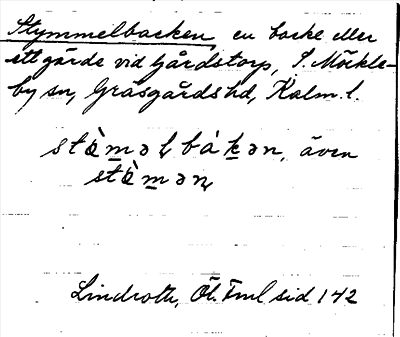 Stymmelbacken, en backe eller
ett gärde vid Gårdstorp, S. Möckle-
by sn, Gräsgårds hd, Kalm. l.
stø̀m̲əl bák̲ən, även
stø̀m̲ən
Lindroth, Öl. Fml sid 142